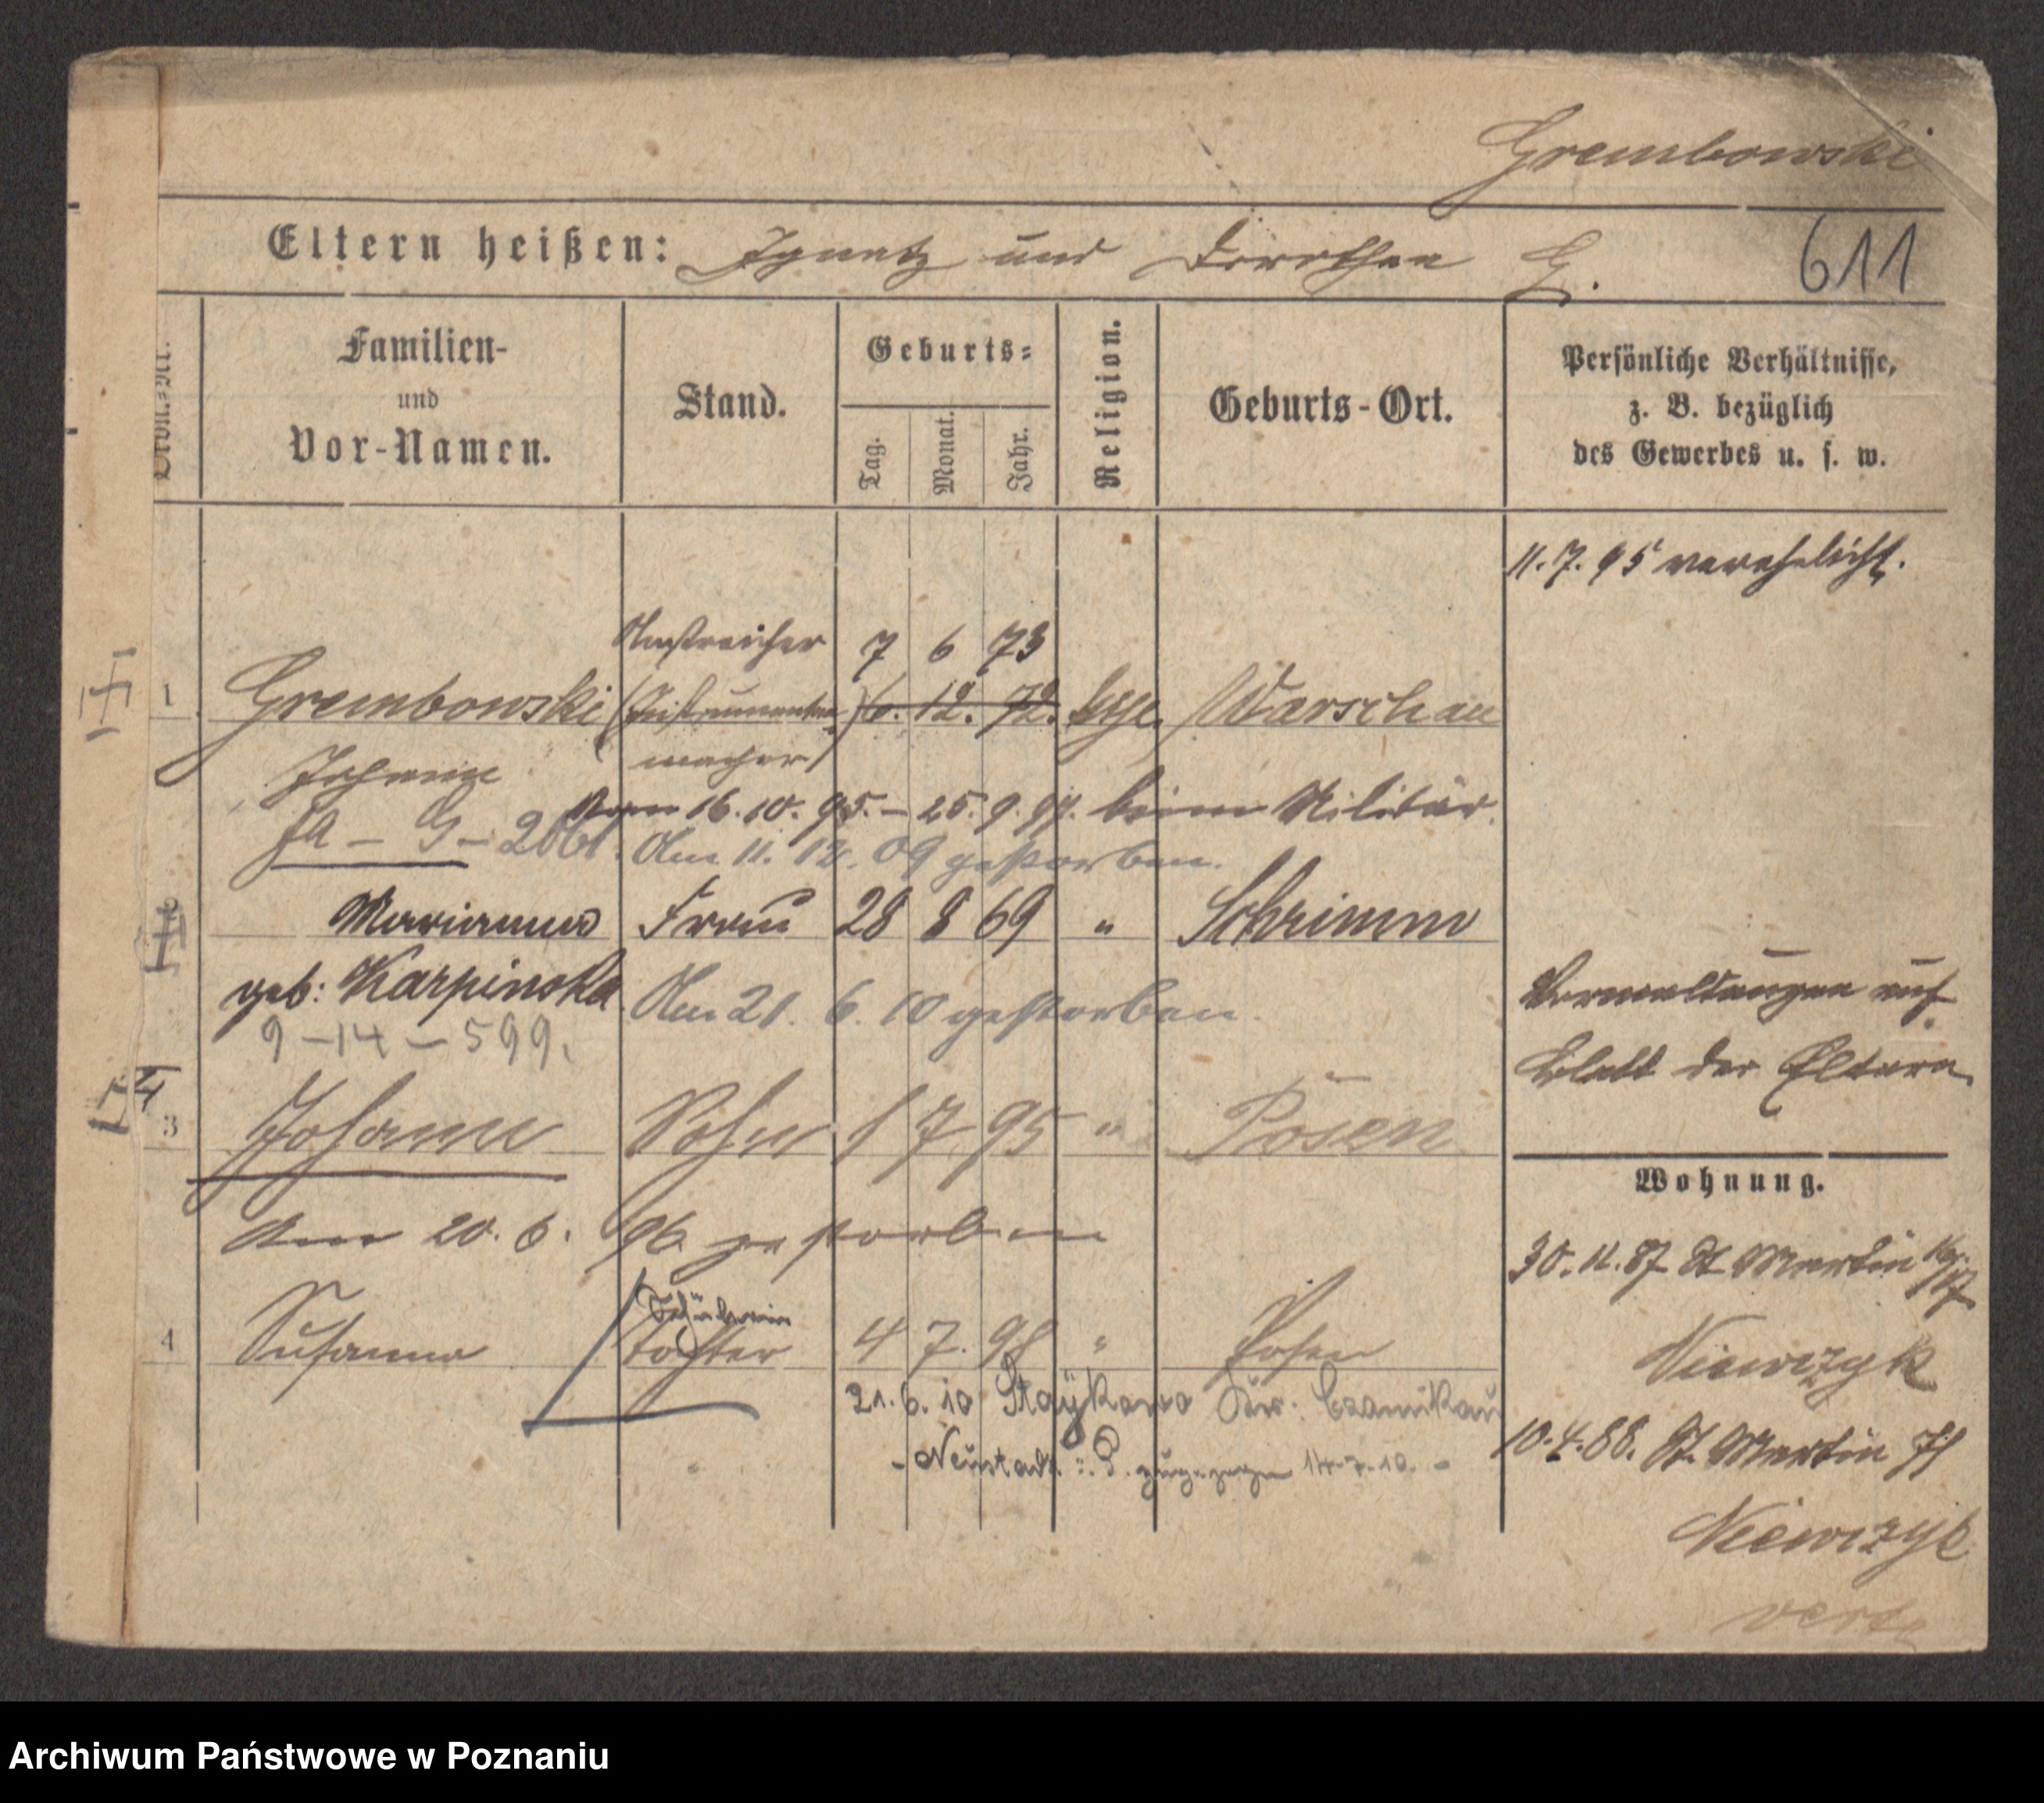 Grembowski
Eltern heißen: Ignatz und Dorothea G.
611
Familien-
und
Vor-Namen.
Stand.
Geburts-
Tag.
Monat.
Jahr.
Religion.
Geburts-Ort.
Persönliche Verhältnisse,
z. B. bezüglich
des Gewerbes u. s. w.
11.7.95 verehelicht.
Anstreicher 7 6 73
1 Grembowski (Instrumenten- 6. 12. 72. kath. Warschau
macher)
Johann
vom 16.10.95. – 25.9.97. beim Militär.
Am 11. 12. 09 gestorben.
2 Marianna Frau 28 8 69 " Schrimm
geb: Karpinska
Am 21. 6. 10 gestorben.
9-14-599.
auf
Blatt der Eltern
3 Johann Sohn 1 7 95 " Posen
Am 20. 6. 96 gestorben
Wohnung.
30.11.87 St Martin
Niewrzyk
4 Susanna Tochter 4 7. 98 " Posen
21.6.10 Staykowo Kr. Czarnikau
- Neustadt zugezogen 14.7.10. -
10.4.88. St. Martin 71
Niewrzyk
verte
Archiwum Państwowe w Poznaniu